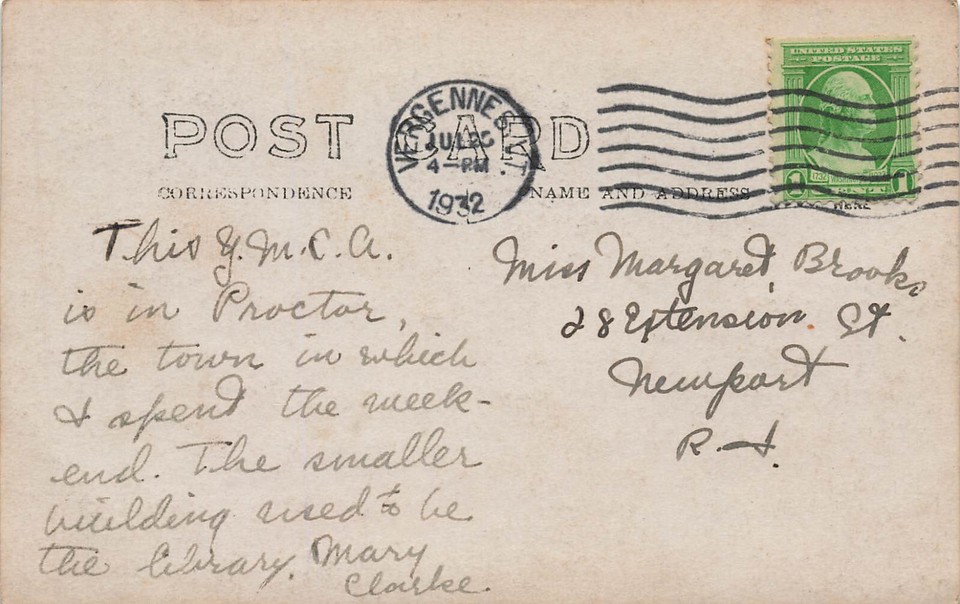 POST CARD
CORRESPONDENCE
NAME AND ADDRESS
VERGENNES, VT.
JUL
4-PM
1932
UNITED STATES
POSTAGE
1 1
1732
HERE
This Y.M.C.A.
is in Proctor,
the town in which
I spend the week-
end. The smaller
building used to be
the library. Mary
Clarke.
Miss Margaret Brooks
28 Extension St.
Newport
R.I.